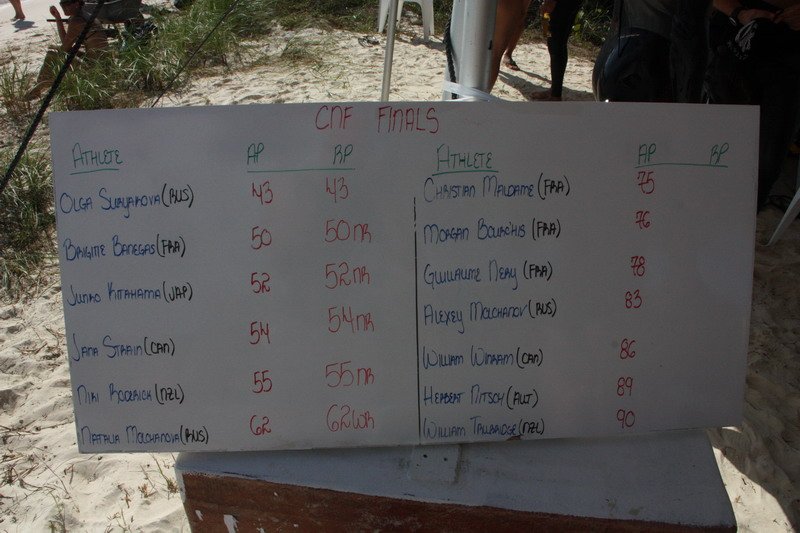 CNF FINALS
ATHLETE AP RP
OLGA SURYAKOVA (RUS) 43 43
BRIGITTE BANEGAS (FRA) 50 50 NR
JUNKO KITAHAMA (JAP) 52 52 NR
JANA STRAIN (CAN) 54 54 NR
NIKI RODERICK (NZL) 55 55 NR
NATALIA MOLCHANOVA (RUS) 62 62 WR
ATHLETE AP RP
CHRISTIAN MALDAME (FRA) 75
MORGAN BOURC'HIS (FRA) 76
GUILLAUME NERY (FRA) 78
ALEXEY MOLCHANOV (RUS) 83
WILLIAM WINRAM (CAN) 86
HERBERT NITSCH (AUT) 89
WILLIAM TRUBRIDGE (NZL) 90